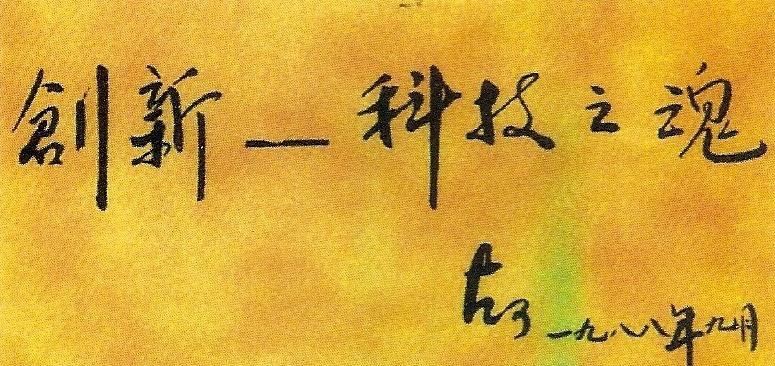 創新—科技之魂
一九八八年九月